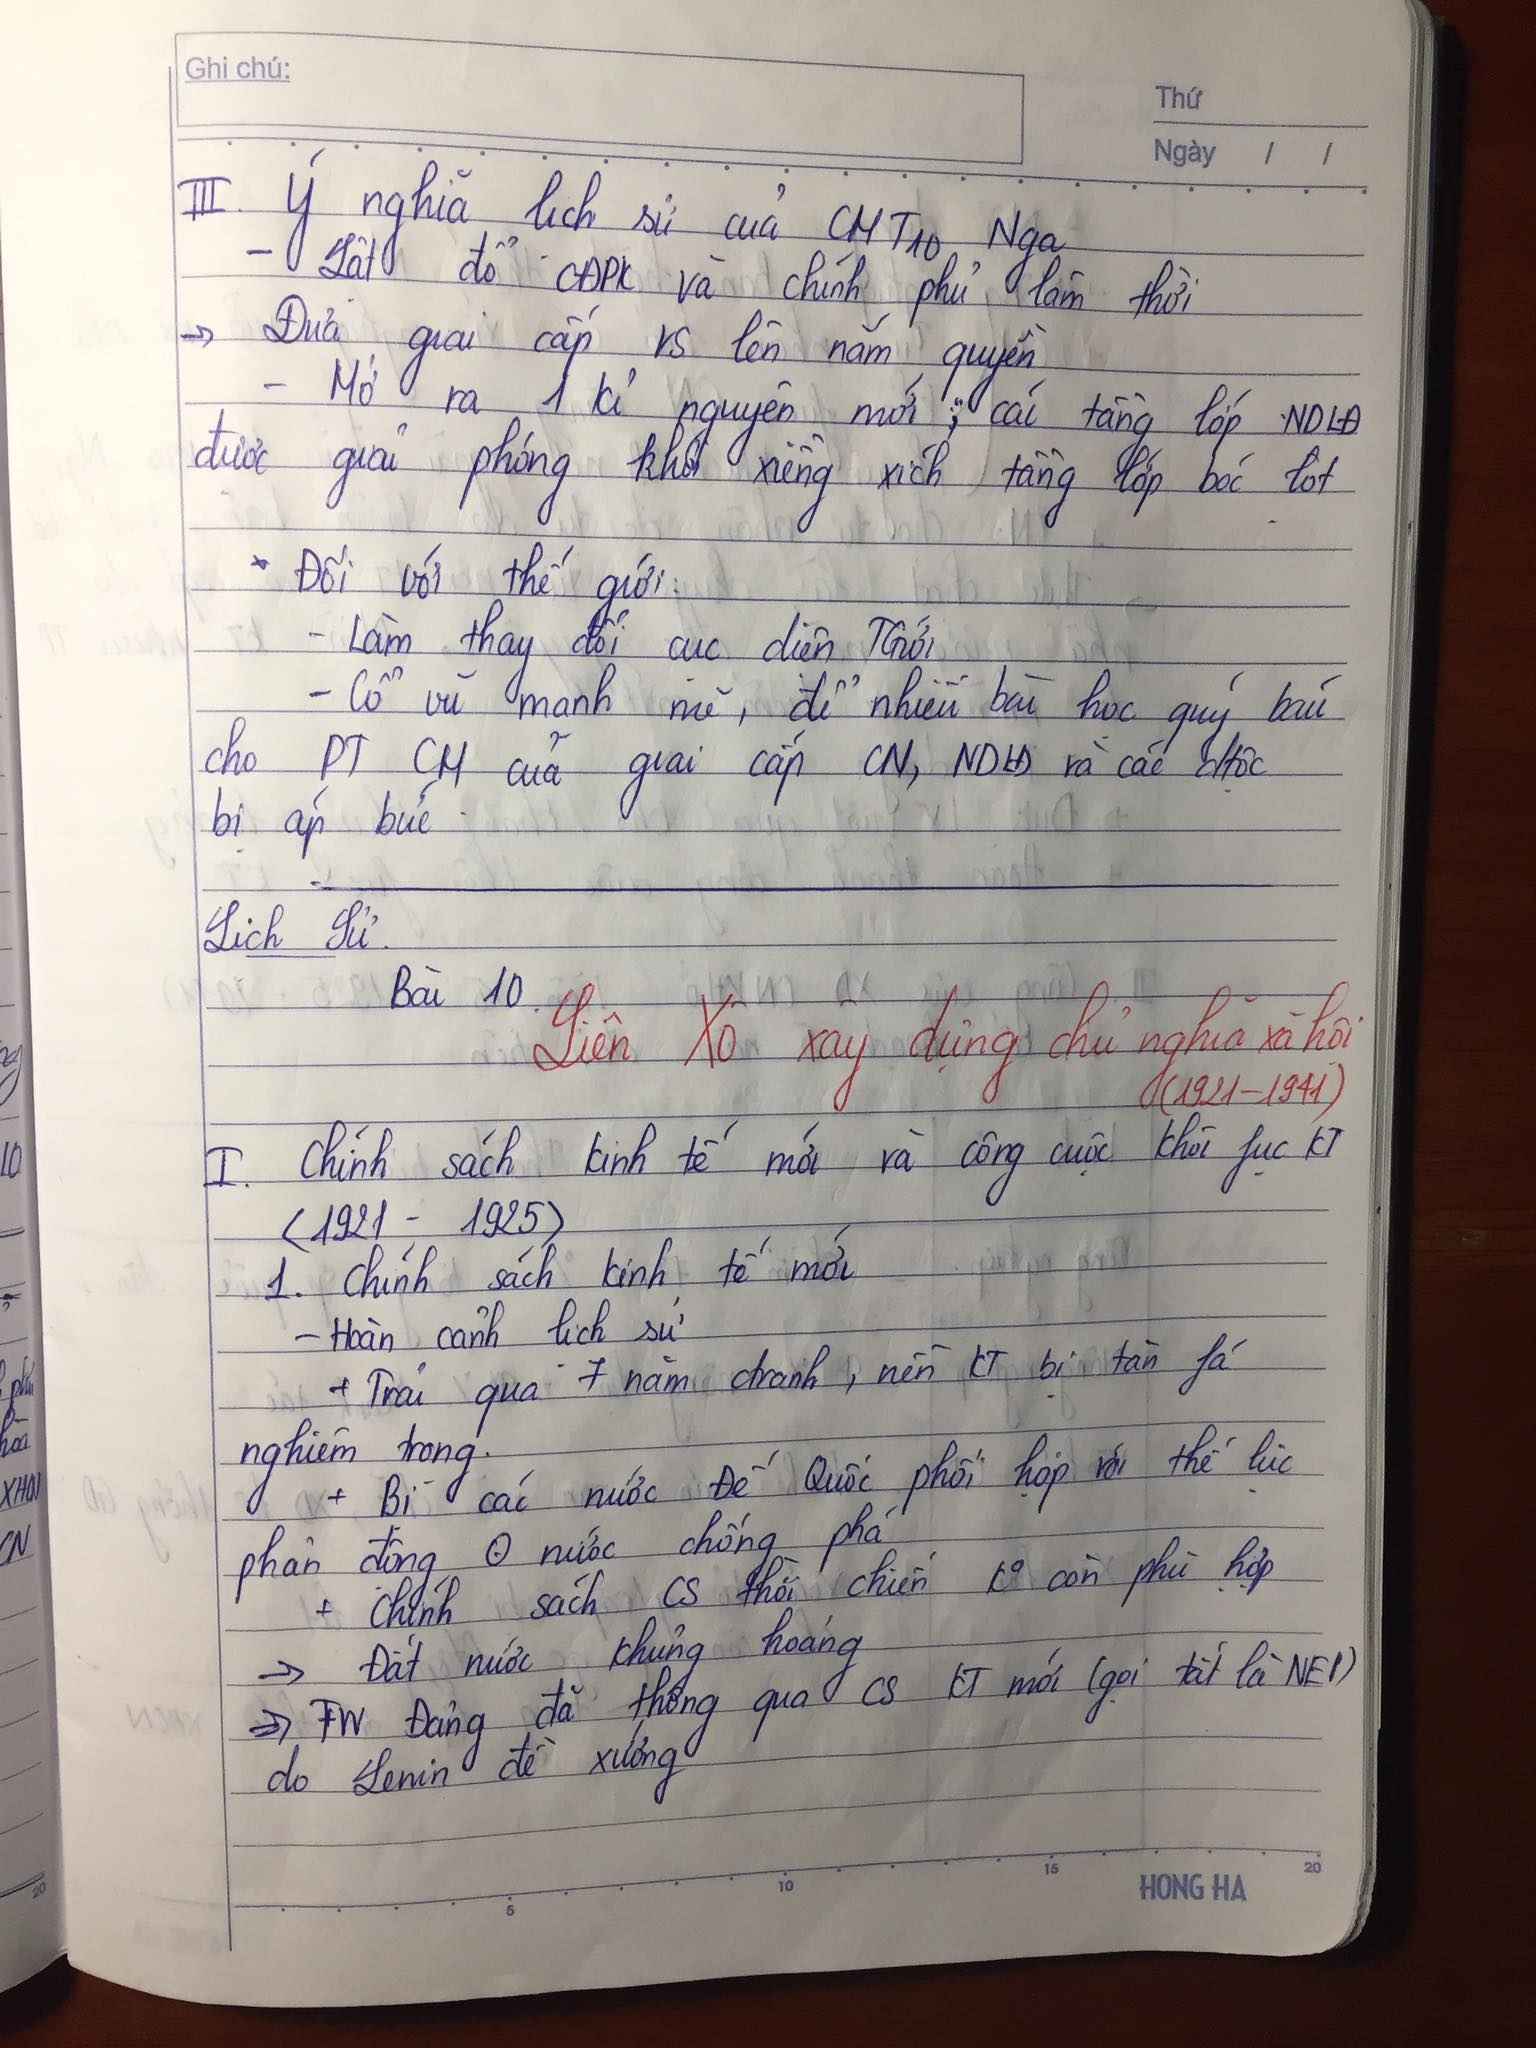 Ghi chú:
Thứ
Ngày / /
III. Ý nghĩa lịch sử của CMT10 Nga
- Lật đổ CĐPK và chính phủ lâm thời
→ Đưa giai cấp VS lên nắm quyền
- Mở ra 1 kỉ nguyên mới; các tầng lớp NDLĐ
được giải phóng khỏi xiềng xích tầng lớp bóc lột
* Đối với thế giới:
- Làm thay đổi cục diện TGiới
- Cổ vũ mạnh mẽ, để nhiều bài học quý báu
cho PT CM của giai cấp CN, NDLĐ và các dtộc
bị áp bức
Lịch Sử.
Bài 10.
Liên Xô xây dựng chủ nghĩa xã hội
(1921-1941)
I. Chính sách kinh tế mới và công cuộc khôi fục KT
(1921 - 1925)
1. Chính sách kinh tế mới
- Hoàn cảnh lịch sử
+ Trải qua 7 năm ctranh, nền KT bị tàn fá
nghiêm trọng.
+ Bị các nước Đế Quốc phối hợp với thế lực
phản động nước chống phá
+ Chính sách CS thời chiến ko còn phù hợp
→ Đất nước khủng hoảng
⇒ TW Đảng đã thông qua CS KT mới (gọi tắt là NEP)
do Lenin đề xướng
5 10 15 20
HONG HA
10
XHCN
CN
20